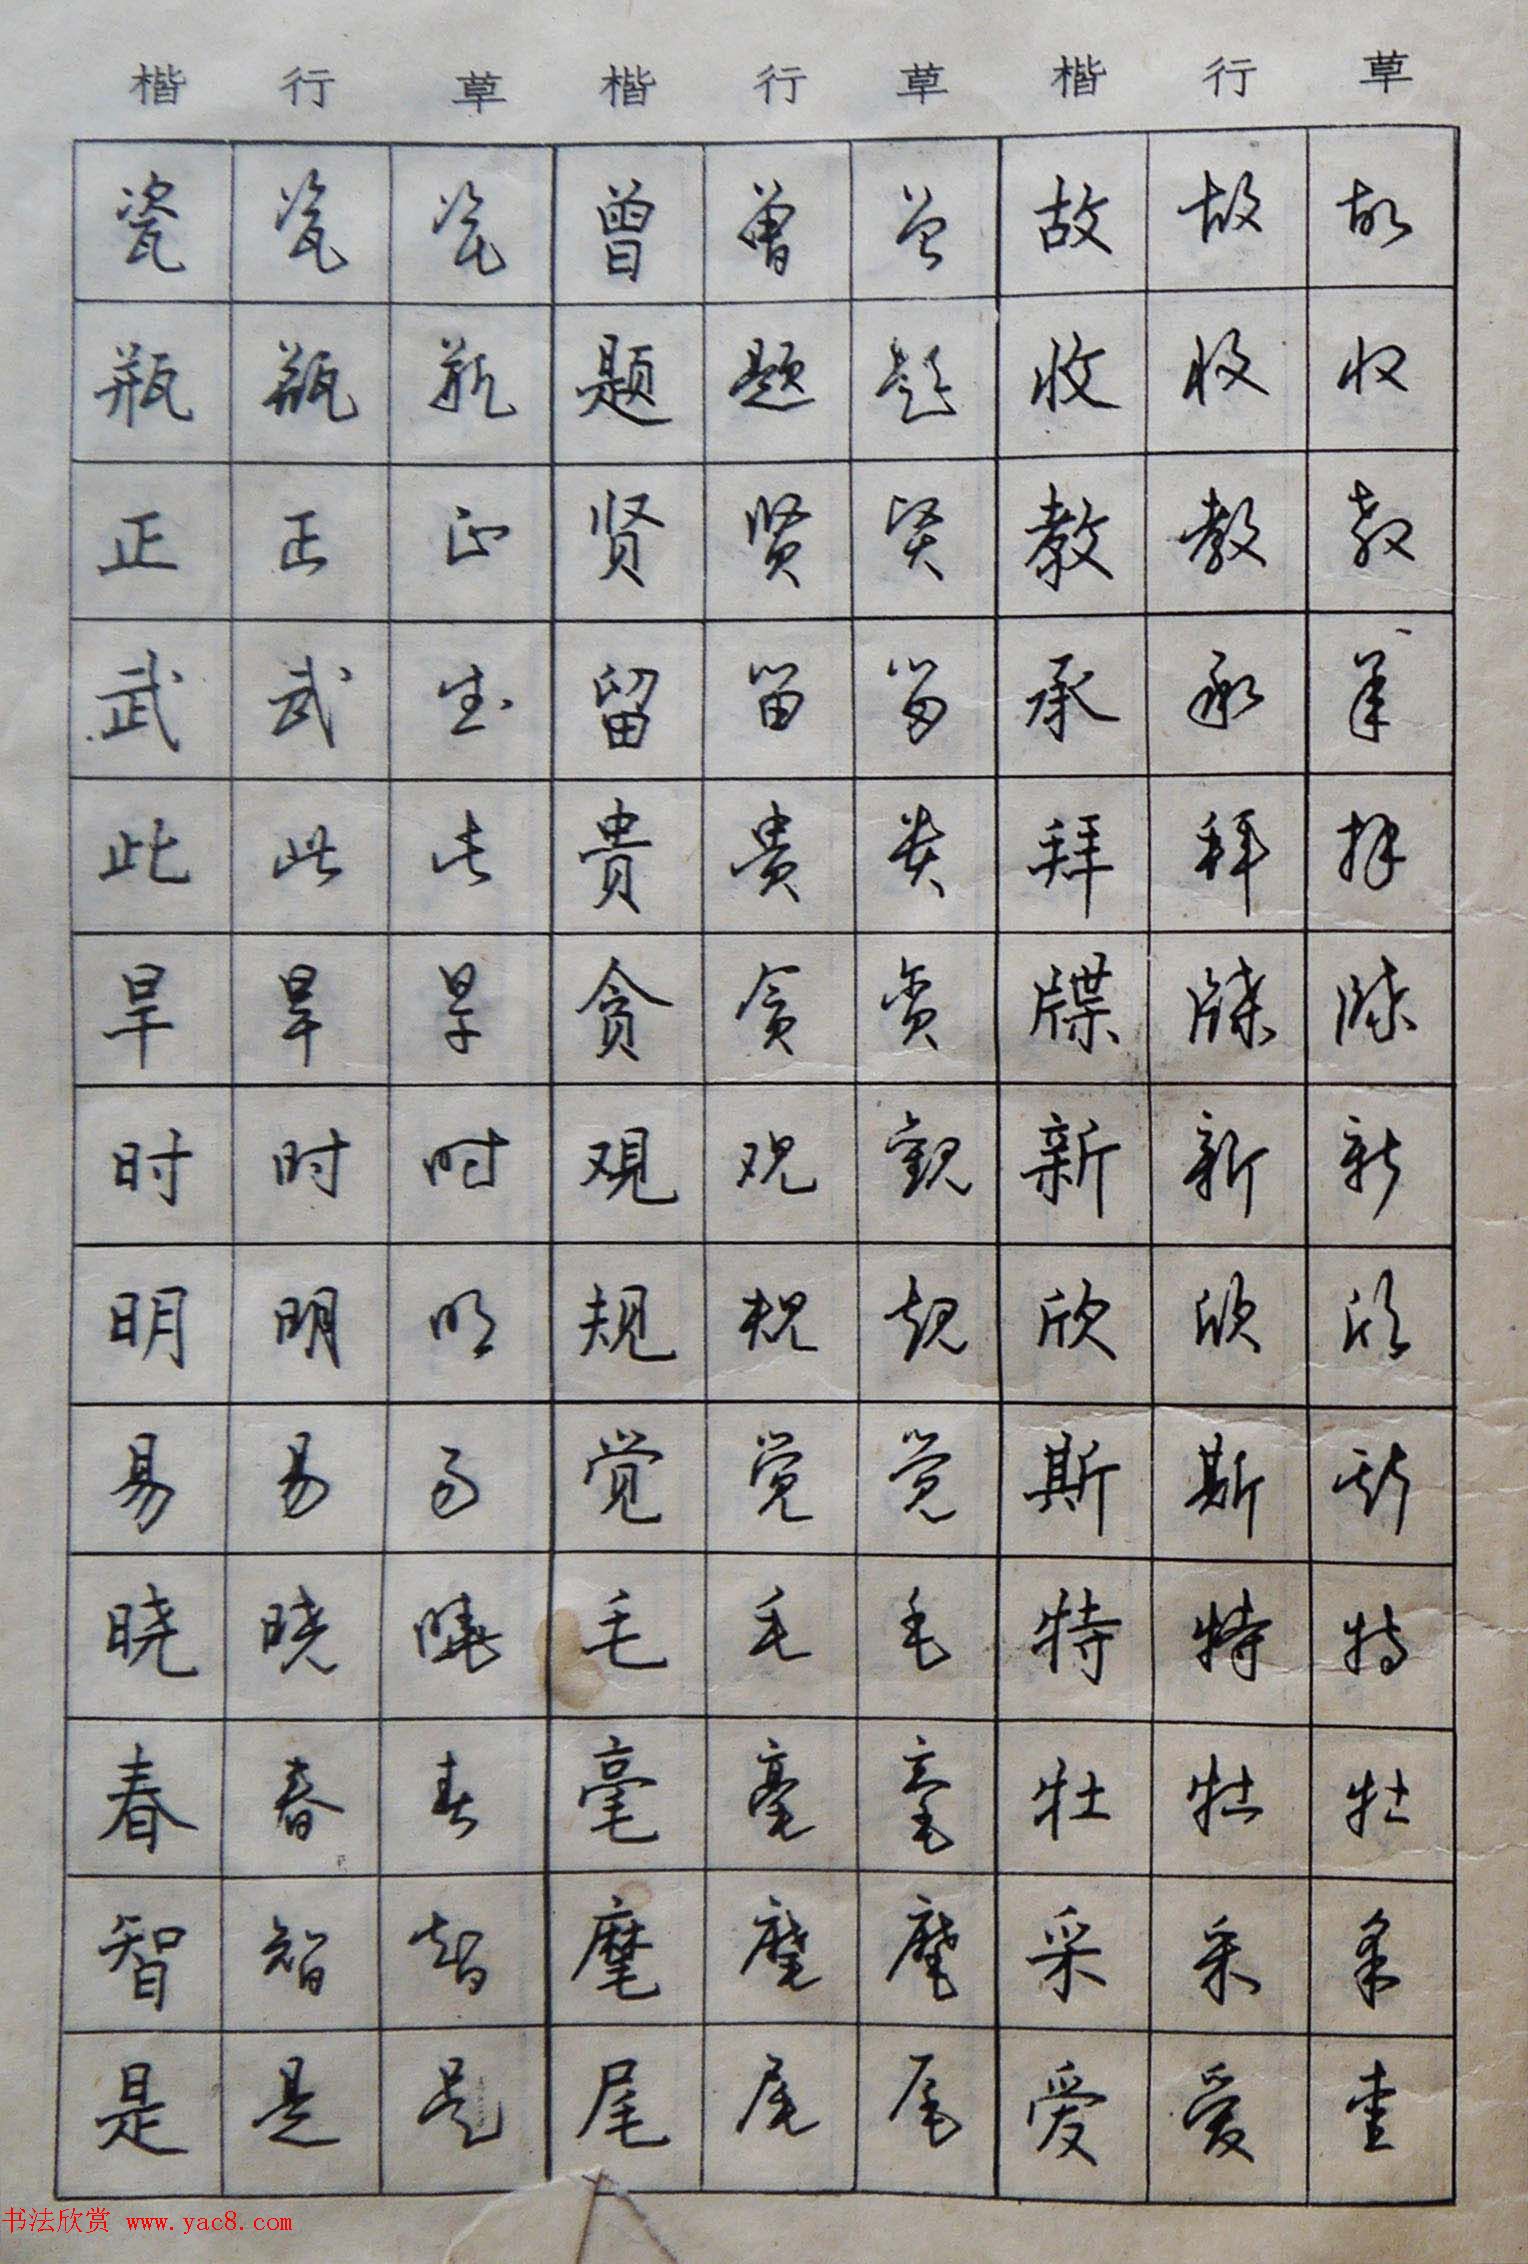 楷 行 草 楷 行 草 楷 行 草
瓷 瓷 瓷 曾 曾 曾 故 故 故
瓶 瓶 瓶 题 题 题 收 收 收
正 正 正 贤 贤 贤 教 教 教
武 武 武 留 留 留 承 承 承
此 此 此 貴 貴 貴 拜 拜 拜
旱 旱 旱 贪 贪 贪 牒 牒 牒
时 时 时 观 观 觀 新 新 新
明 明 明 规 规 规 欣 欣 欣
易 易 易 觉 觉 觉 斯 斯 斯
晓 晓 曉 毛 毛 毛 特 特 特
春 春 春 毫 毫 毫 牡 牡 牡
智 智 智 麾 麾 麾 采 采 采
是 是 是 尾 尾 尾 爱 爱 爱
书法欣赏 www.yac8.com